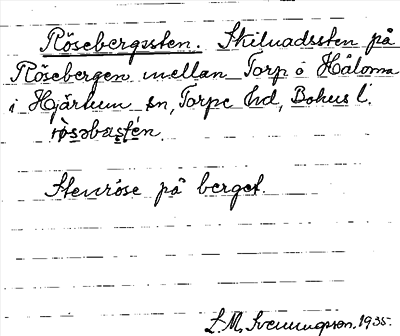 Rösebergssten. Skilnadssten på
Rösebergen mellan Torp o Håloma
i Hjärtum sn, Torpe hd, Bohus l.
rö̀səbæsté̱n.
Stenröse på berget.
L. M. Svenungsson. 1935.